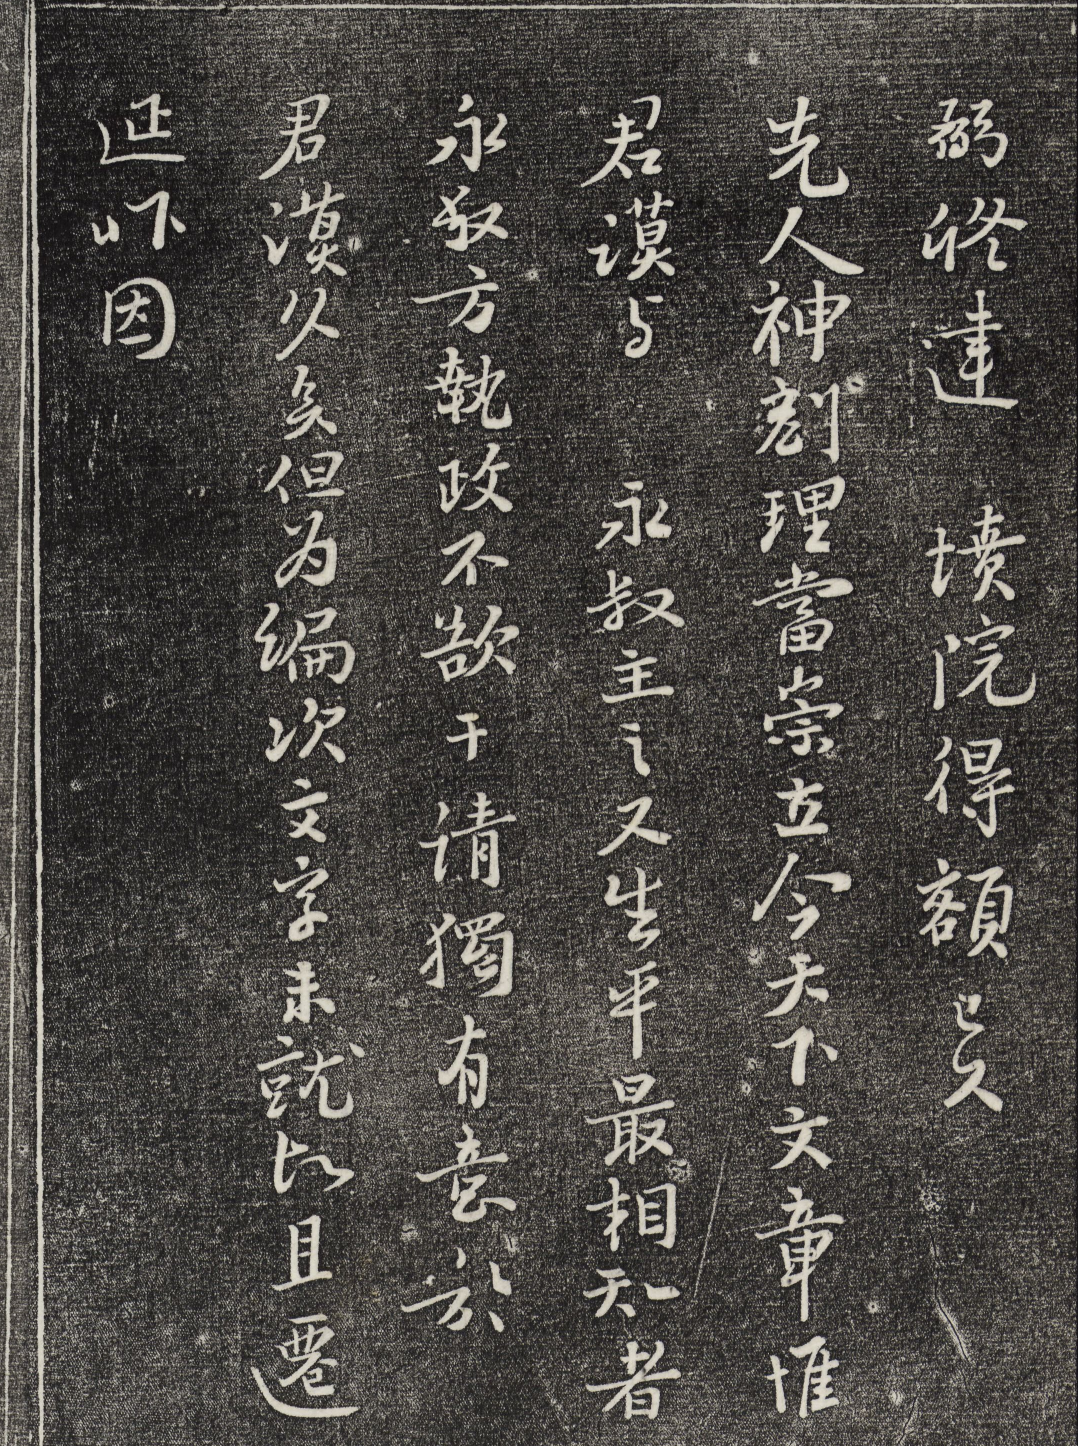 弼修建 墳院得額之久
先人神刻理當崇立今天下文章惟
君謨与 永叔主之又生平最相知者
永叔方執政不欲干请獨有意於
君謨久矣但为編次文字未就故且遷
延以下因